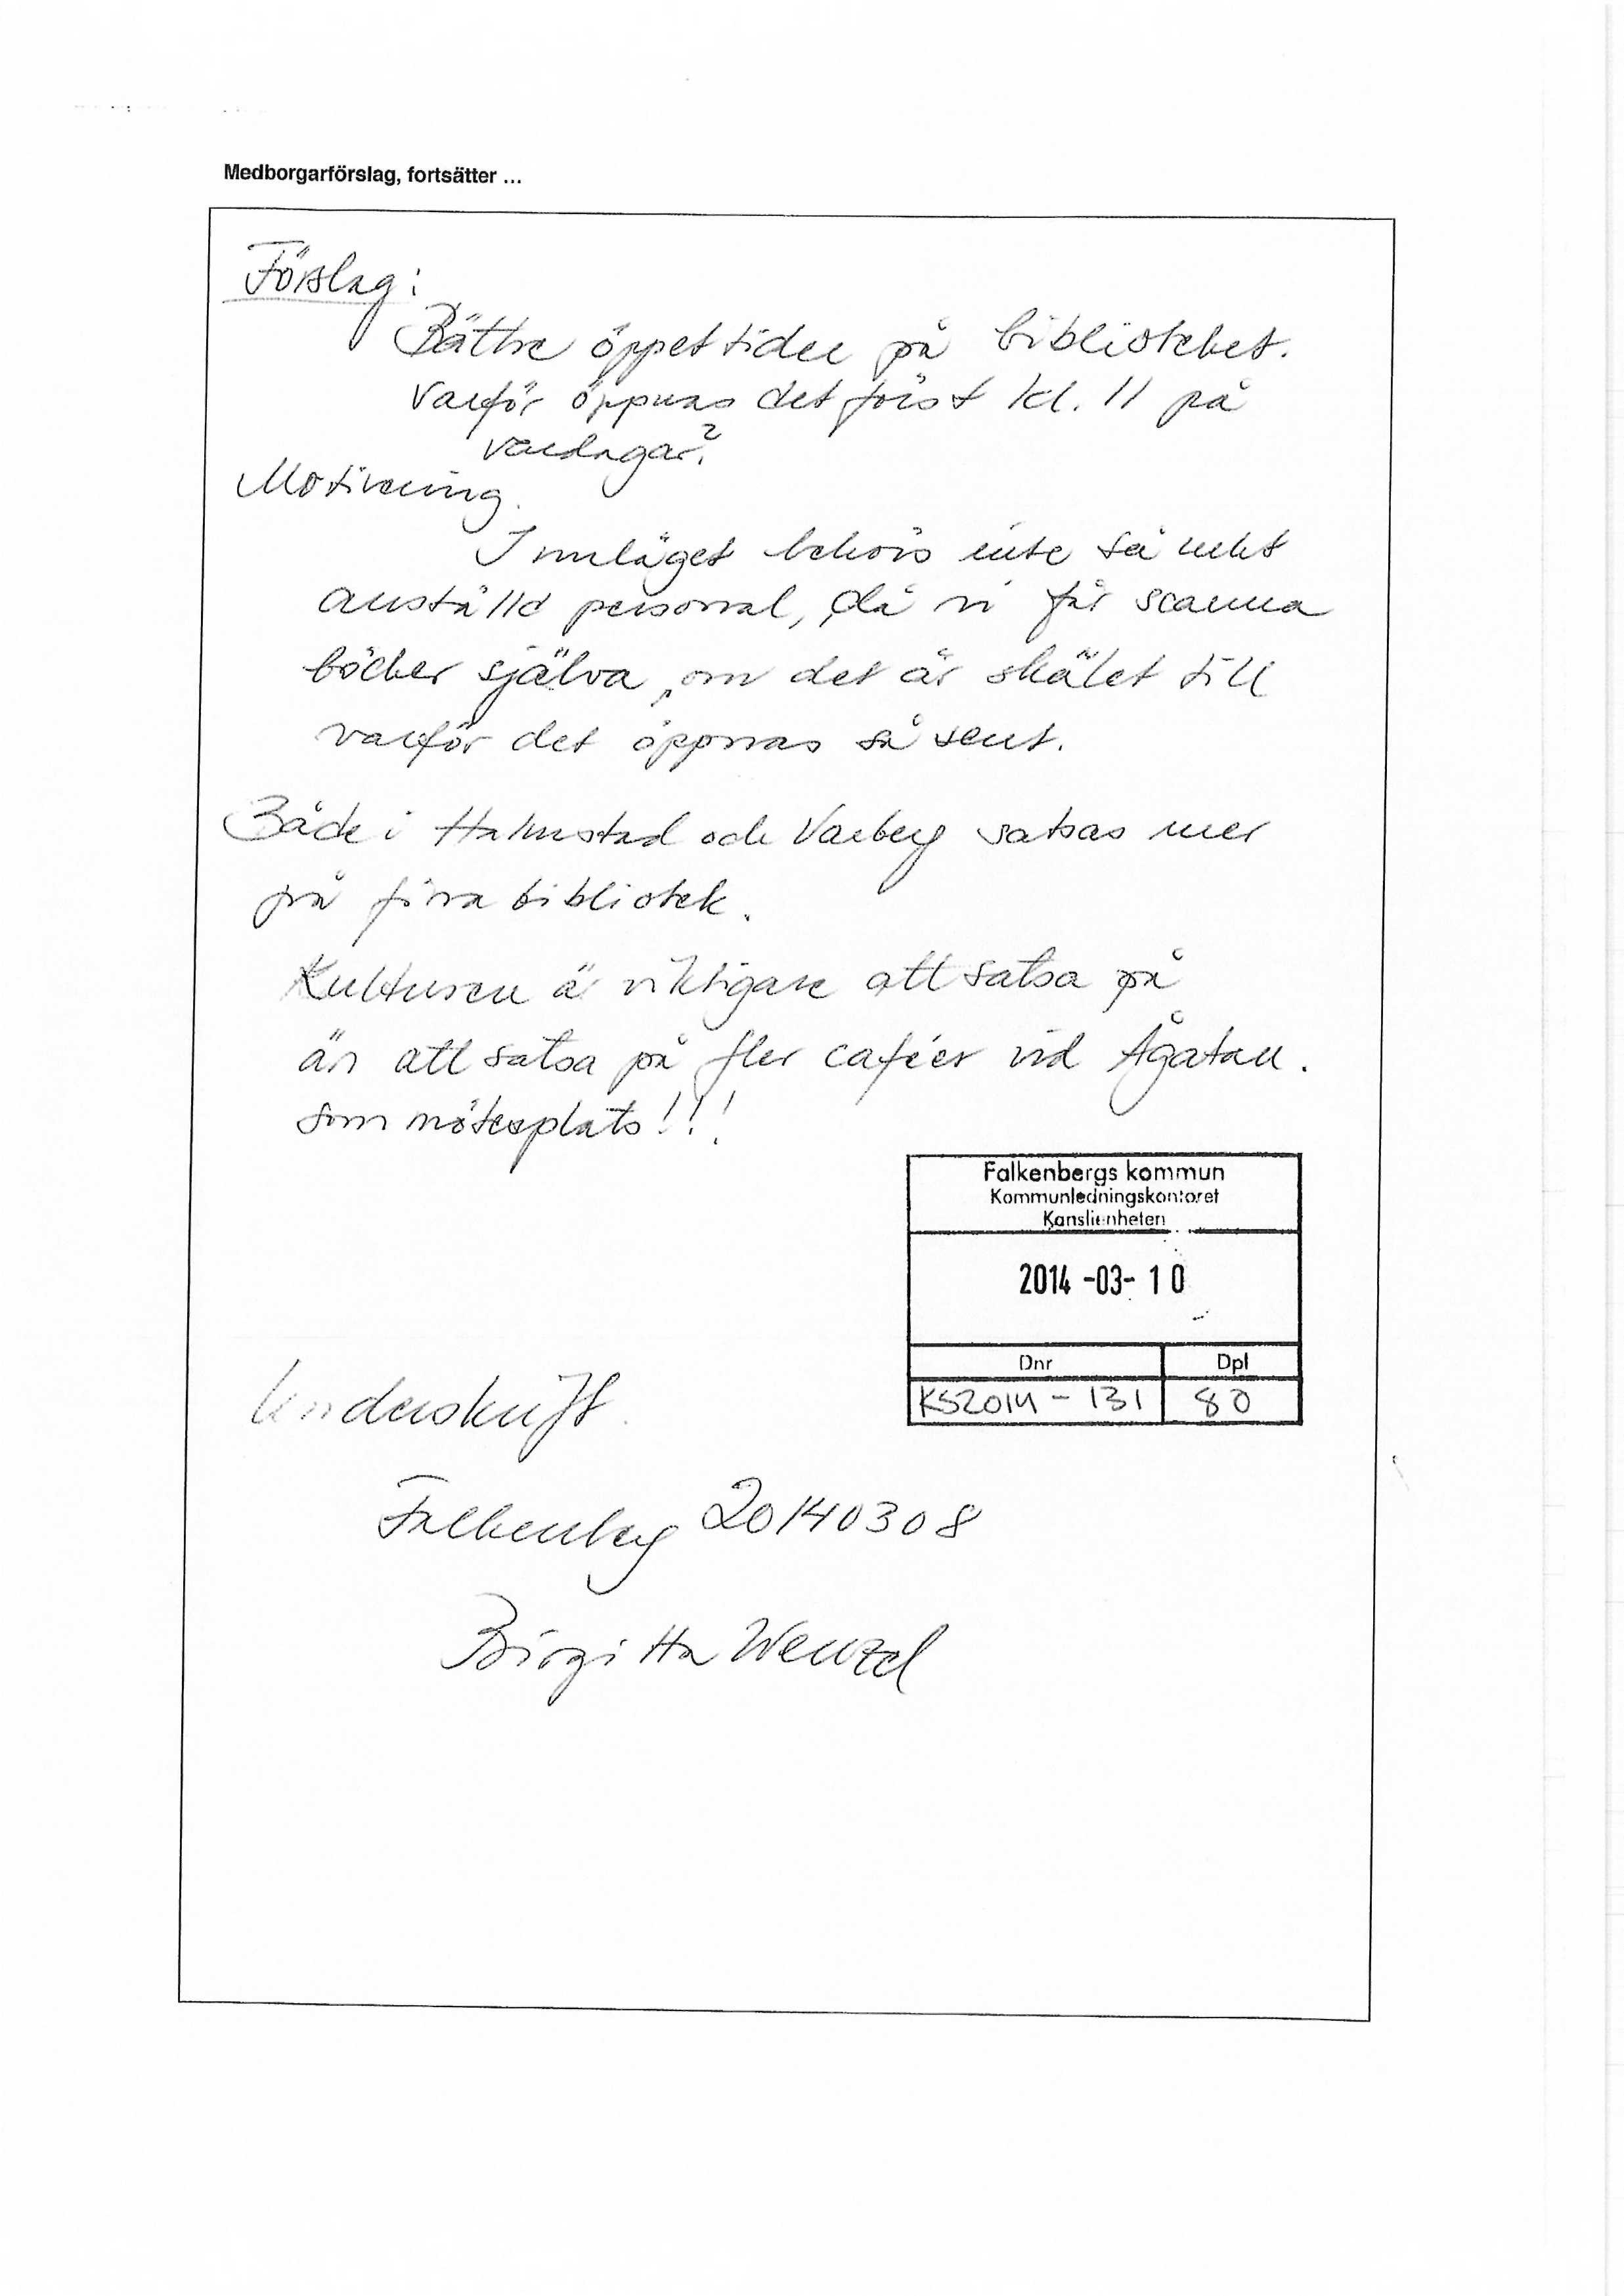 Medborgarförslag, fortsätter ...
Förslag:
Bättre öppettider på biblioteket.
Varför öppnas det först kl. 11 på
vardagar?
Motivering.
I nuläget behövs inte så mkt
anställd personal, då vi får scanna
böcker själva, om det är skälet till
varför det öppnas så sent.
Både i Halmstad och Varberg satsas mer
på fina bibliotek.
Kulturen är viktigare att satsa på
än att satsa på fler caféer vid Ågatan.
som mötesplats!!!
Falkenbergs kommun
Kommunledningskontoret
Kanslienheten
2014-03-10
Dnr Dpl
KS2014-131 80
Underskrift.
Falkenberg 20140308
Birgitta Wenzel